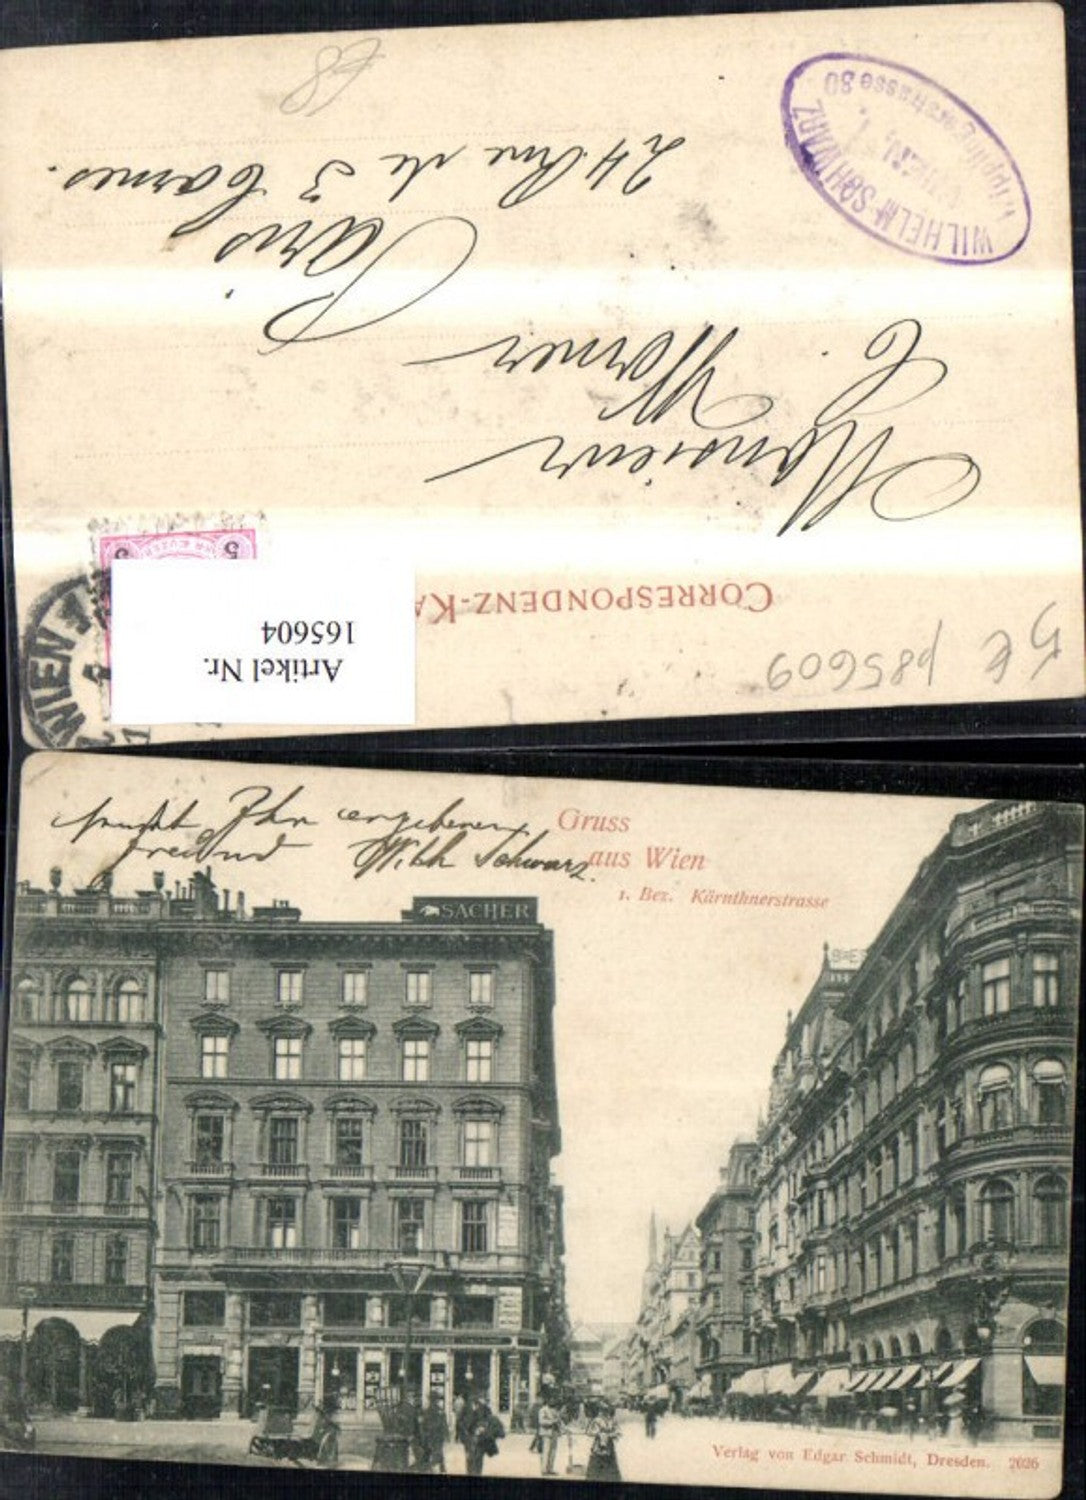 CORRESPONDENZ-KA
Monsieur
E. Werner
Paris
24 Rue de 3 Bornes.
WILHELM SCHWARZ
WIEN,
strasse 30
WIEN
5
Artikel Nr.
165604
p85609
Gruss
aus Wien
1. Bez. Kärnthnerstrasse
Ihr ergebener
Freund Wilh Schwarz.
SACHER
Verlag von Edgar Schmidt, Dresden. 2026